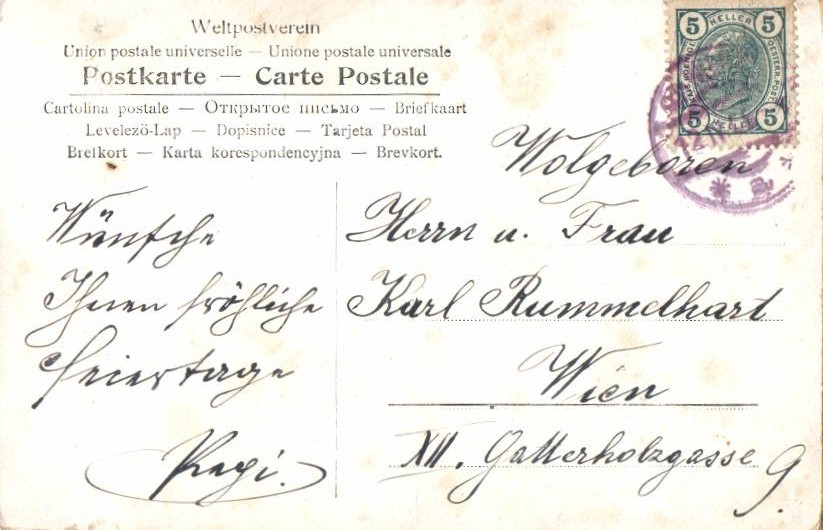 Weltpostverein
Union postale universelle — Unione postale universale
Postkarte — Carte Postale
Cartolina postale — Открытое письмо — Briefkaart
Levelező-Lap — Dopisnice — Tarjeta Postal
Brefkort — Karta korespondencyjna — Brevkort.
5 HELLER 5
5 HELLER 5
Wolgeboren
Herrn u. Frau
Karl Rummelhart
Wien
XII. Gatterholzgasse 9.
Wünsche
Ihnen fröhliche
Feiertage